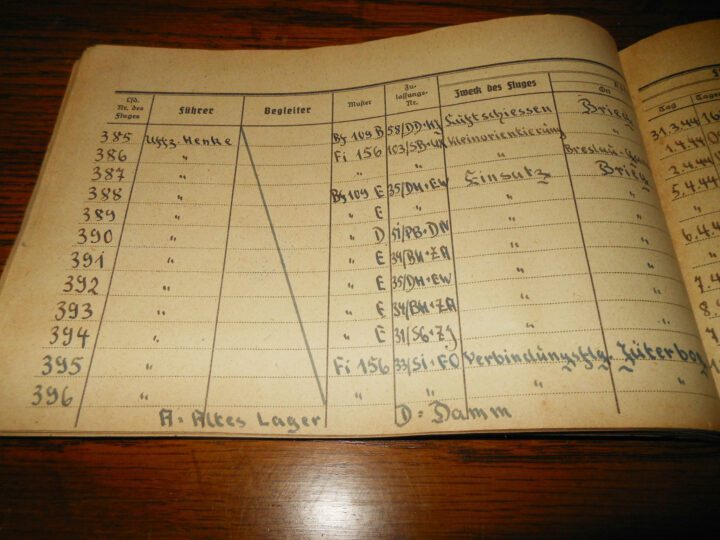 Lfd. Nr. des Fluges Führer Begleiter Muster Zulassungs-Nr. Zweck des Fluges Ort Tag Tages
385 Uffz. Henke Bf 109 B 58/DD+HJ Luftschiessen Brieg 31.3.44 16
386 " Fi 156 103/SB+UX Kleinorientierung " 1.4.44
387 " " " " Breslau 2.4.44
388 " Bf 109 E 35/DH+EW Einsatz Brieg 5.4.44
389 " " E " " "
390 " " D 51/PB+DN " " 6.4.4
391 " " E 34/BH+ZA " "
392 " " E 35/DH+EW " " 7.4
393 " " E 34/BH+ZA " " 8.
394 " " E 31/SG+ZJ " "
395 " Fi 156 33/Si+FO Verbindungsflg. Jüterbog
396 " " " " "
A = Altes Lager D = Damm